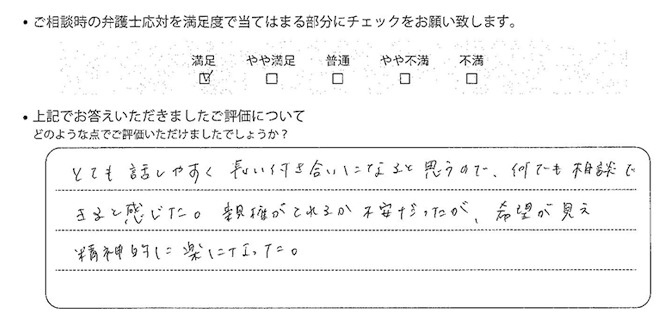 • ご相談時の弁護士応対を満足度で当てはまる部分にチェックをお願い致します。
満足 やや満足 普通 やや不満 不満
☑ ☐ ☐ ☐ ☐
• 上記でお答えいただきましたご評価について
どのような点でご評価いただけましたでしょうか？
とても話しやすく長い付き合いになると思うので、何でも相談で
きると感じた。親権がとれるか不安だったが、希望が見え
精神的に楽になった。